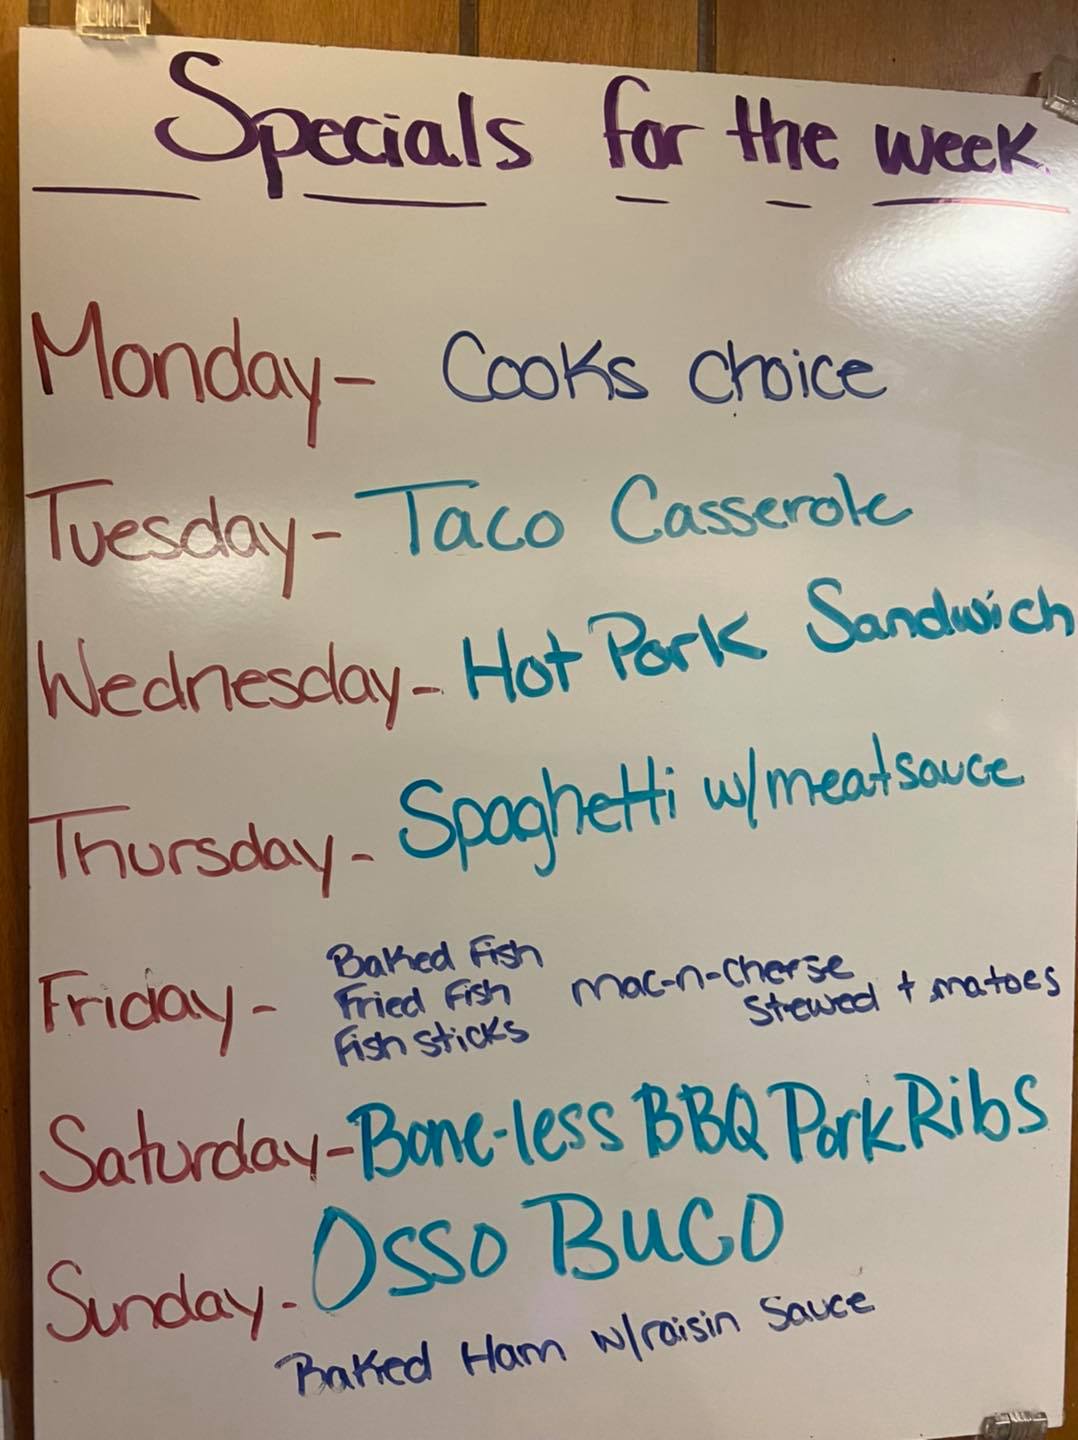 Specials for the week
Monday- Cooks choice
Tuesday- Taco Casserole
Wednesday- Hot Pork Sandwich
Thursday- Spaghetti w/meatsauce
Friday-
Baked Fish
Fried Fish
Fish sticks
mac-n-cheese
stewed tomatoes
Saturday- Bone-less BBQ Pork Ribs
Sunday- Osso Buco
Baked Ham w/raisin Sauce